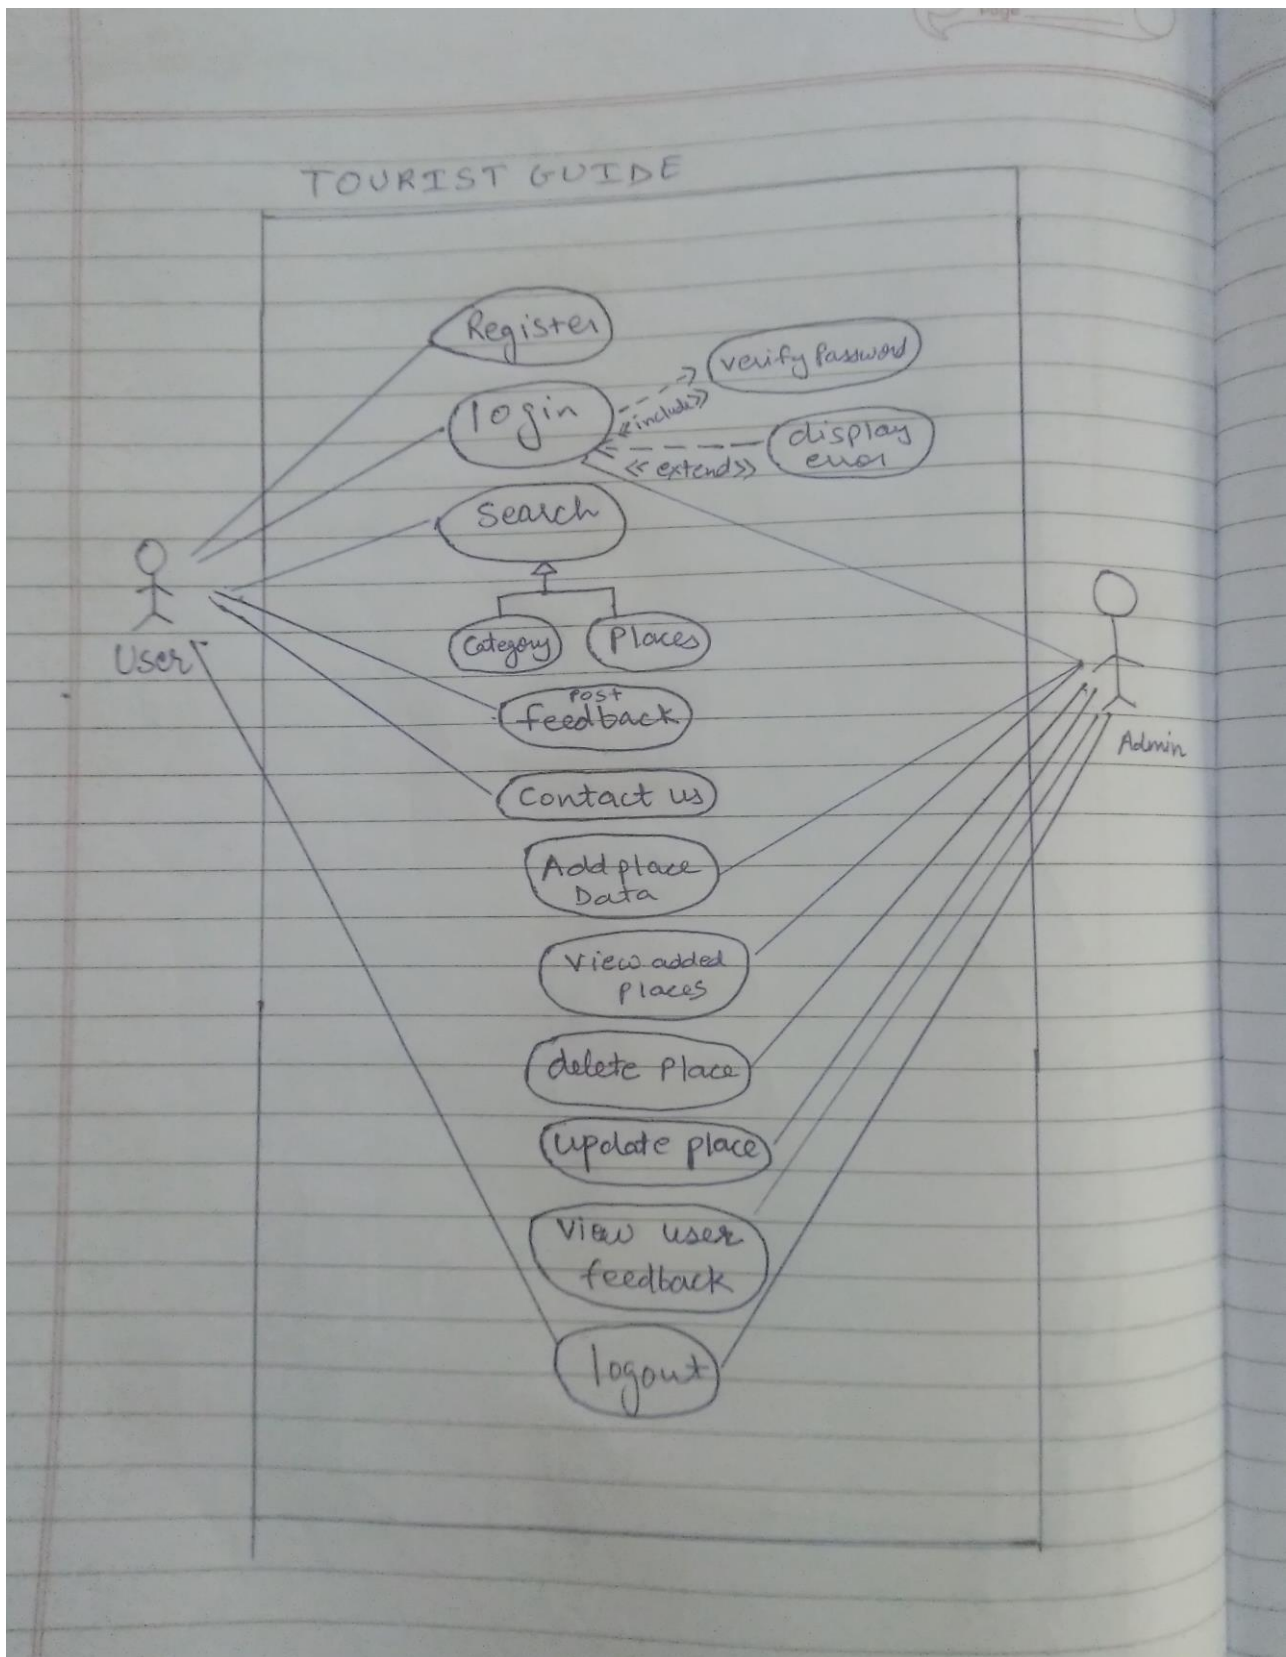 Page
TOURIST GUIDE
Register
verify Password
login
<<include>>
display
error
<<extend>>
Search
Category
Places
User
Post
feedback
Admin
Contact us
Add place
Data
View added
places
delete Place
update place
View user
feedback
logout